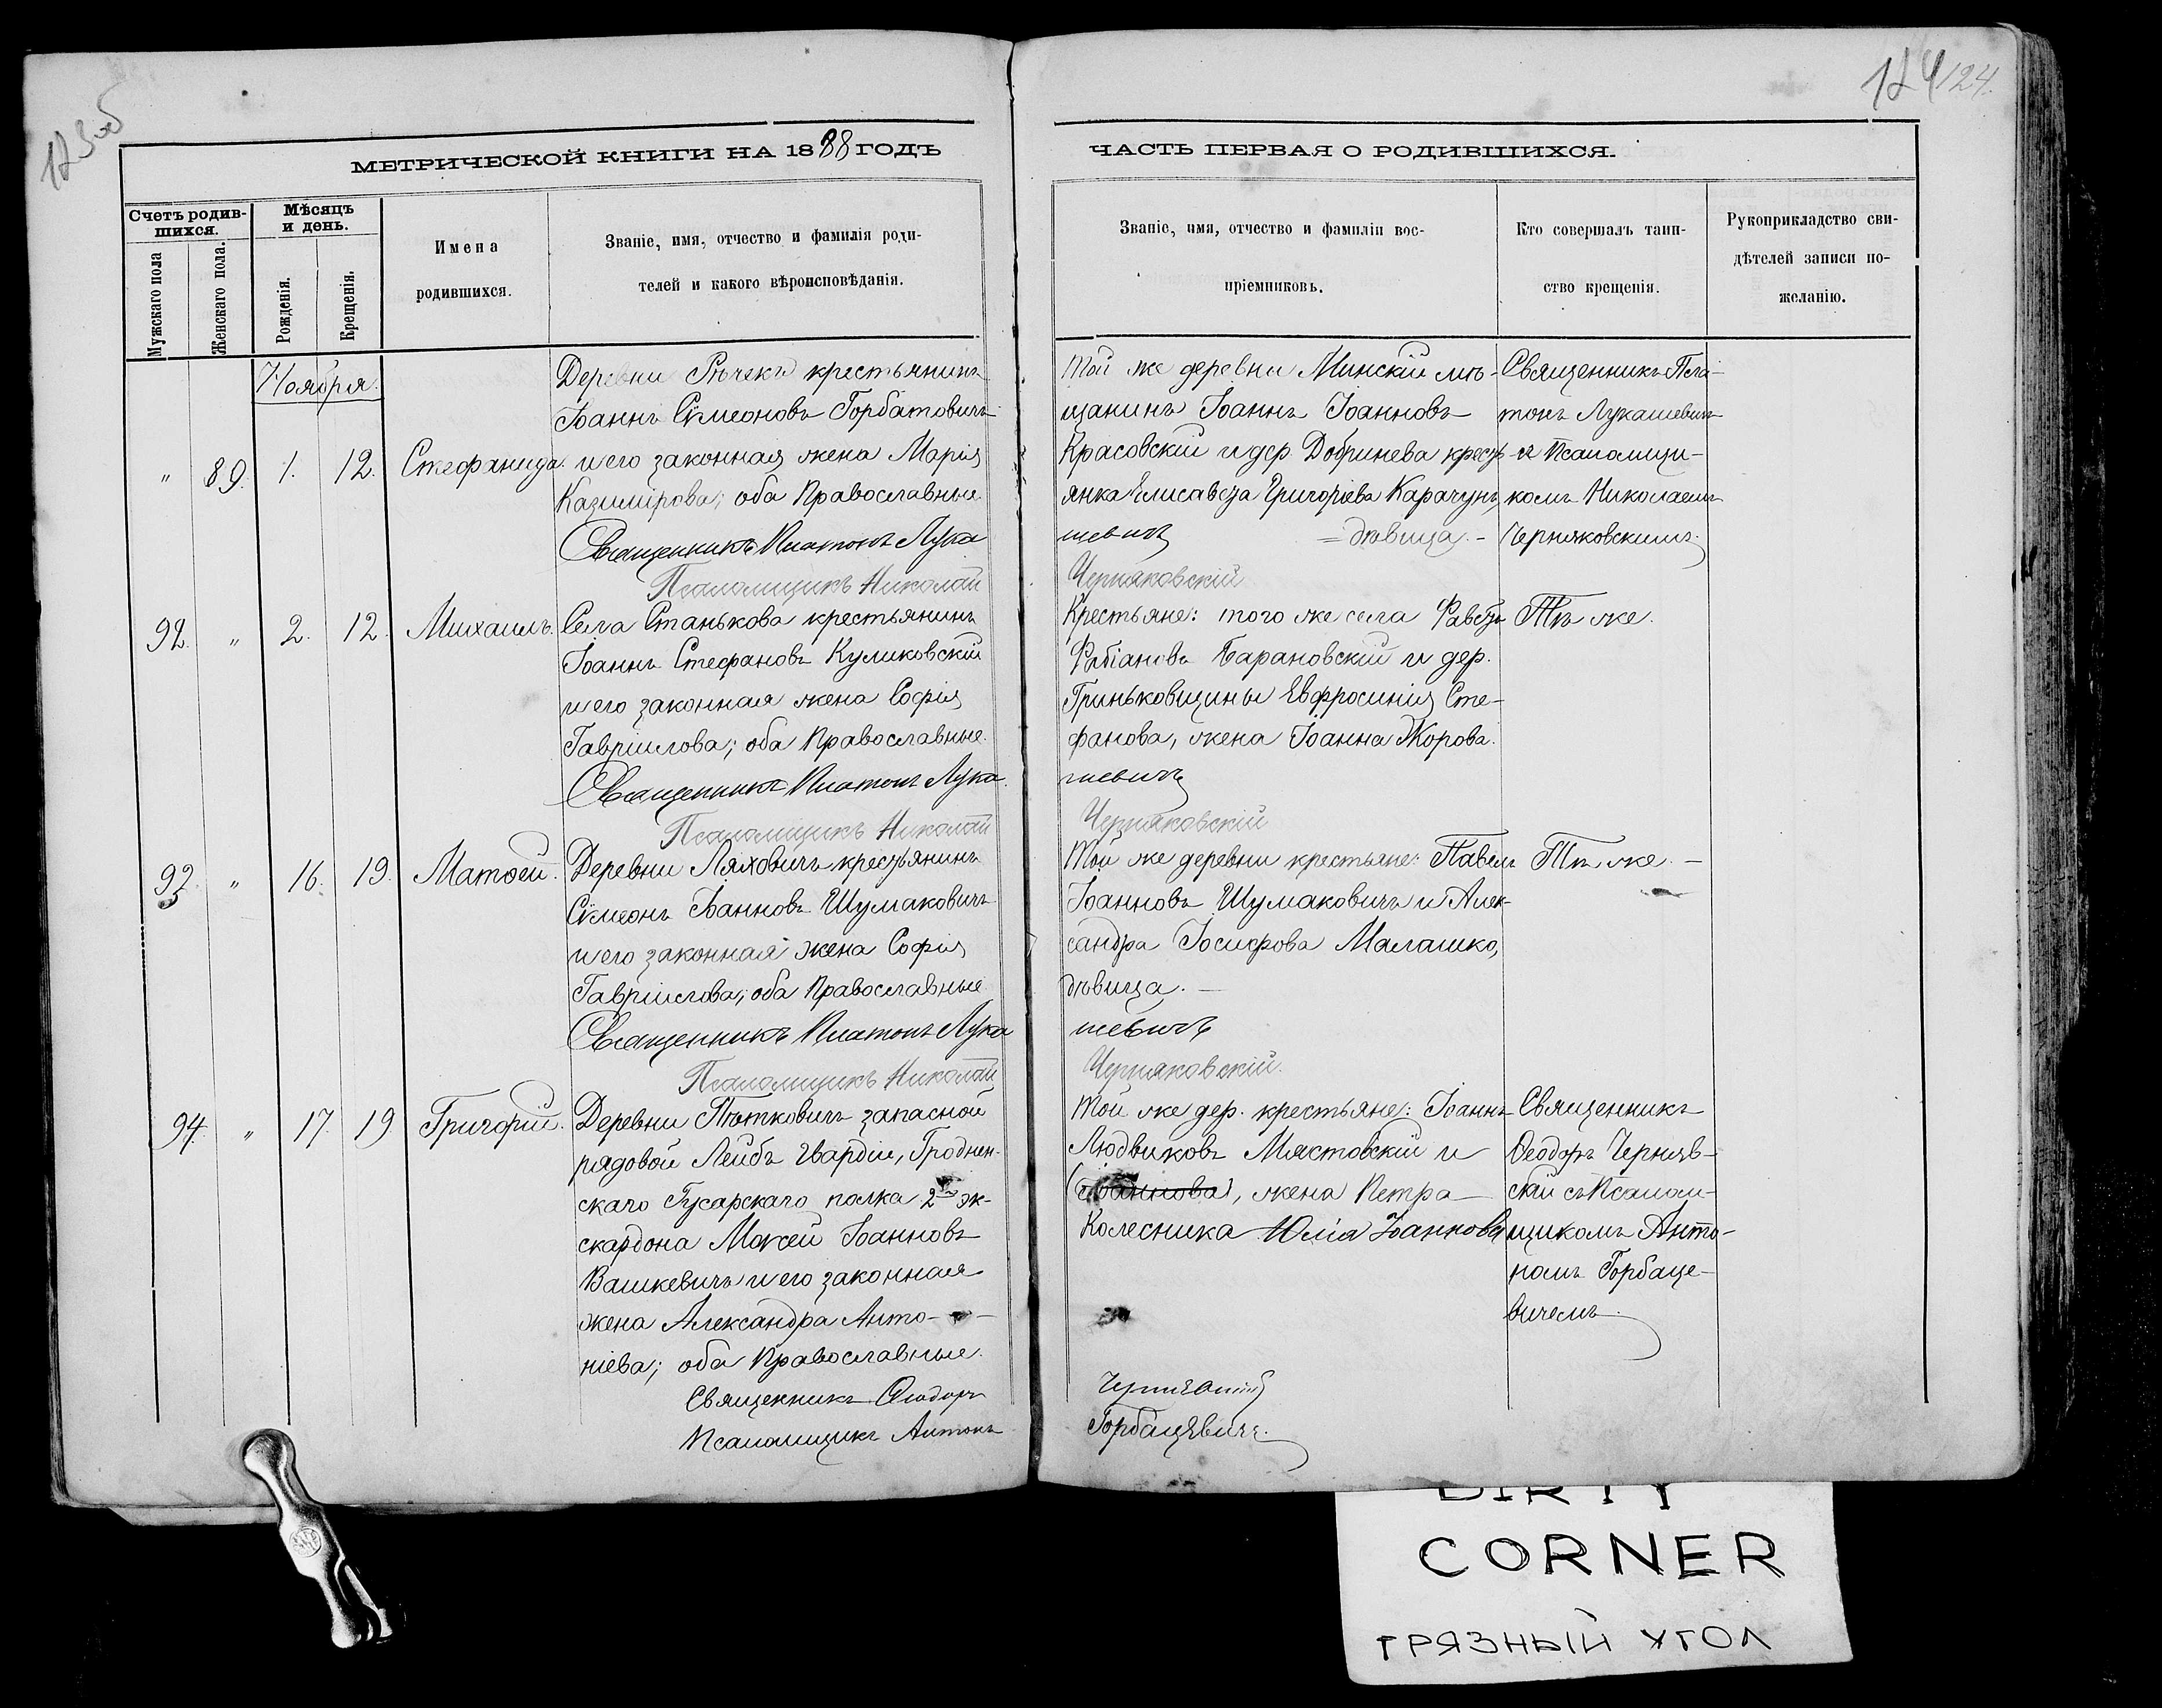 123 об
124
124.
МЕТРИЧЕСКОЙ КНИГИ НА 1888 ГОДЪ
ЧАСТЬ ПЕРВАЯ О РОДИВШИХСЯ.
Счетъ родив-
шихся.
Мужскаго пола
Женскаго пола.
Мѣсяцъ
и день.
Рожденія.
Крещенія.
Имена
родившихся.
Званіе, имя, отчество и фамилія роди-
телей и какого вѣроисповѣданія.
Званіе, имя, отчество и фамиліи вос-
пріемниковъ.
Кто совершалъ таин-
ство крещенія.
Рукоприкладство сви-
дѣтелей записи по-
желанію.
Ноября.
" 89. 1. 12. Стефанида.
Деревни Рѣчекъ крестьянинъ
Іоаннъ Сѵмеоновъ Горбатовичъ
и его законная жена Марія
Казимірова; оба Православные.
Священникъ Платонъ Лука
Псаломщикъ Николай
Той же деревни Минскій мѣ-
щанинъ Іоаннъ Іоанновъ
Красовскій и дер. Добринева кресть-
янка Елисавета Григоріева Карачунъ,
шевичъ = дѣвица. -
Черняковскій
Священникъ Пла-
тонъ Лукашевичъ
съ Псаломщи-
комъ Николаемъ
Черняковскимъ.
92. " 2. 12. Михаилъ.
Села Станькова крестьянинъ
Іоаннъ Стефановъ Куликовскій
и его законная жена Софія
Гавріилова; оба Православные.
Священникъ Платонъ Лука
Псаломщикъ Николай
Крестьяне: того же села Фавстъ
Фабіановъ Барановскій и дер.
Гриньковщины Евфросинія Сте-
фанова, жена Іоанна Жорова.
шевичъ
Черняковскій
Тѣ же.
93. " 16. 19. Матѳей.
Деревни Ляховичъ крестьянинъ
Сѵмеонъ Іоанновъ Шумаковичъ
и его законная жена Софія
Гавріилова; оба Православные
Священникъ Платонъ Лука
Псаломщикъ Николай
Той же деревни крестьяне: Павелъ
Іоанновъ Шумаковичъ и Алек-
сандра Іосифова Малашко,
дѣвица. -
шевичъ
Черняковскій.
Тѣ же. -
94. " 17. 19. Григорій.
Деревни Пѣтковичъ запасной
рядовой Лейбъ Гвардіи, Гроднен-
скаго Гусарскаго полка 2го эс-
скардона Моѵсей Іоанновъ
Вашкевичъ и его законная
жена Александра Анто-
ніева; оба Православные.
Священникъ Ѳеодоръ
Псаломщикъ Антонъ
Той же дер. крестьяне: Іоаннъ
Людвиковъ Мястовскій и
(Іоаннова), жена Петра
Колесника Юлія Іоаннова
Горбацевичъ.
Священникъ
Ѳеодоръ Черняв-
скій съ Псалом-
щикомъ Анто-
номъ Горбаце-
вичемъ.
DIRTY
CORNER
ГРЯЗНЫЙ УГОЛ